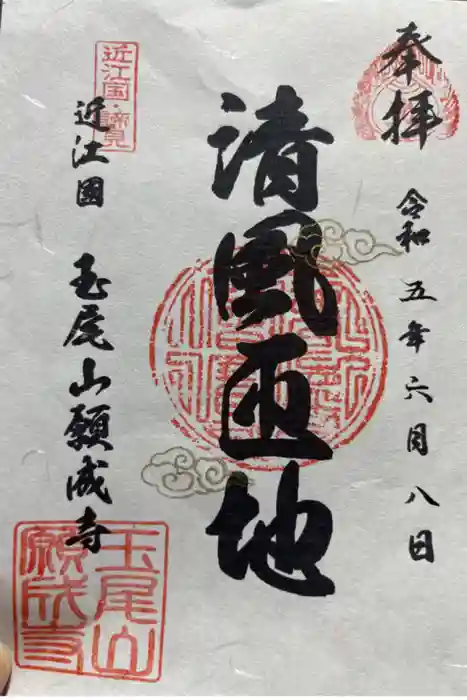 奉拝
令和五年六月八日
清風匝地
近江国・諦見
近江國 玉尾山願成寺
玉尾山
願成寺